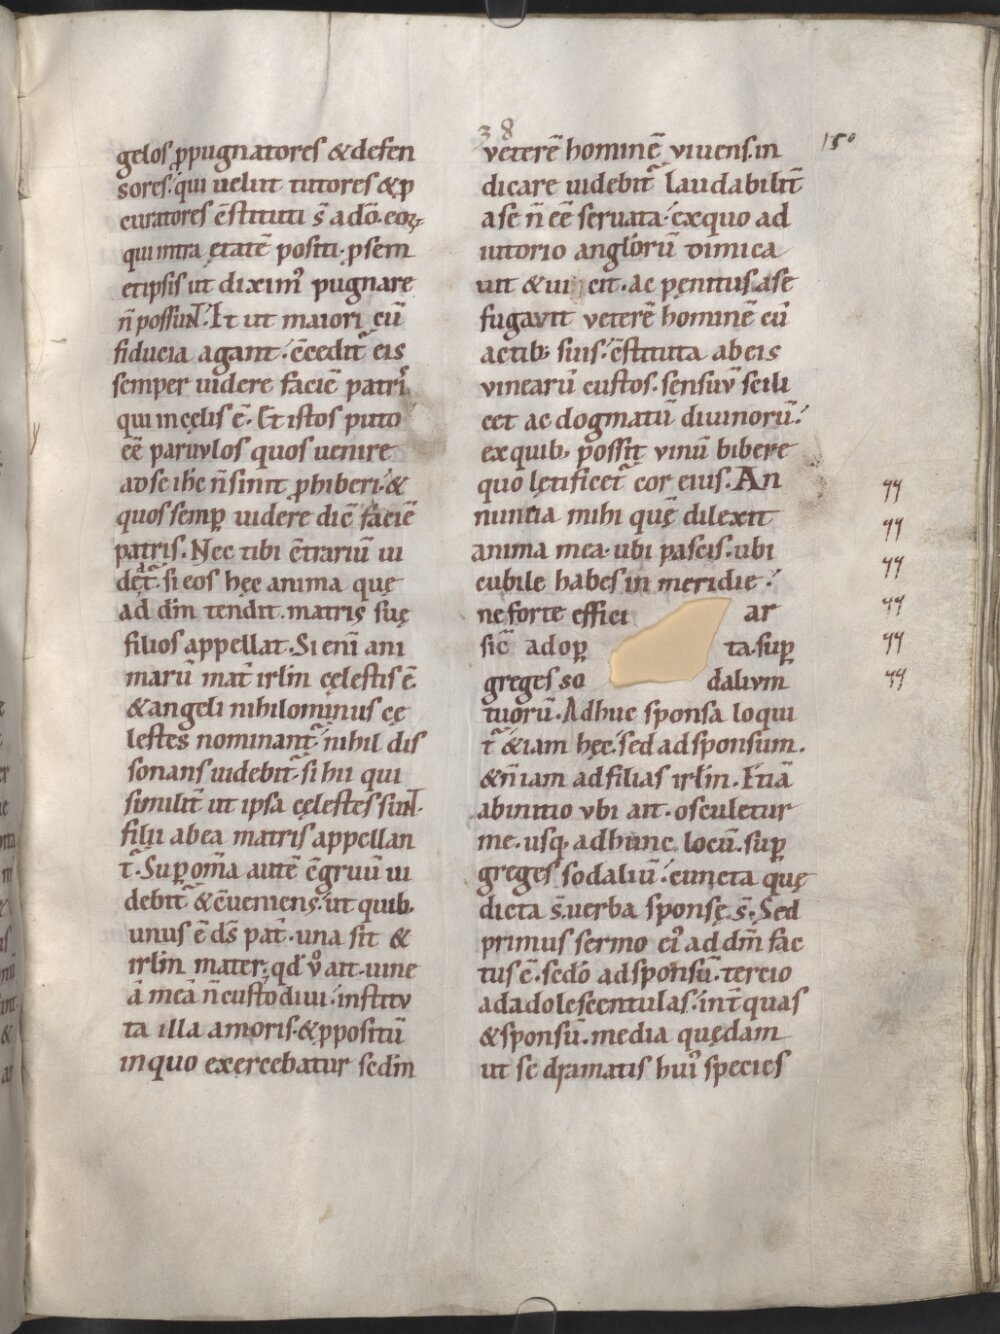 38
15º
gelos ꝓpugnatores & defen
sores. qui uelut tutores & ꝓ
curatores c̄stituti s̄ a dō. eoꝝ
qui intra ętatē positi. ꝑ sem
etipsis ut diximꝰ pugnare
n̄ possunt. It ut maiori cū
fiducia agant. c̄cedit̄ eis
semper uidere faciē patrꝭ
qui in cęlis ē. Et istos puto
eē paruulos quos uenire
ad se ihc̄ n̄ sinit ꝓhiberi. &
quos semꝑ uidere dic̄ faciē
patris. Nec tibi c̄trariū ui
det̄. si eos hęc anima quę
ad dm̄ tendit. matris suę
filios appellat. Si eni ani
marū mat̄ irlm̄ cęlestis ē.
& angeli nihilominus cę
lestes nominant̄. nihil dis
sonans uidebit̄. si hii qui
similit̄ ut ipsa cęlestes sunt.
filii ab ea matris appellan
t̄. Suꝑ om̄a autē c̄gruū ui
debit̄ & c̄ueniens. ut quib.
unus ē ds̄ pat̄. una sit &
irlm̄ mater. qd̄ ůo ait. uine
ā meā n̄ custodiui. institu
ta illa amoris. & ꝓpositū
in quo exercebatur sedm̄
veterē hominē vivens. in
dicare uidebit̄ laudabilit̄
a se n̄ eē seruata. ex quo ad
iutorio anglorū dimica
uit & uicit. ac penitus a se
fugauit veterē hominē cū
actib; suis. c̄stituta ab eis
vinearū custos. sensuū scili
cet ac dogmatū diuinorū.
ex quib; possit vinū bibere
quo lętificet̄ cor eius. An
nuntia mihi quę dilexit
anima mea. ubi pascis. ubi
cubile habes in meridie.
ne forte effici ar
sic̄ adoꝑ ta. suꝑ
greges so dalium
tuorū. Adhuc sponsa loqui
t̄ & iam hęc. sed ad sponsum.
& n̄ iam ad filias irlm̄. Etiā
ab initio ubi ait. osculetur
me. usq; ad hunc locū. suꝑ
greges sodaliū. cuncta quę
dicta s̄. uerba sponsę s̄. Sed
primus sermo eiꝰ ad dm̄ fac
tus ē. sedō ad sponsū. tercio
ad adolescentulas. int̄ quas
& sponsū. media quędam
ut se dramatis huiꝰ species